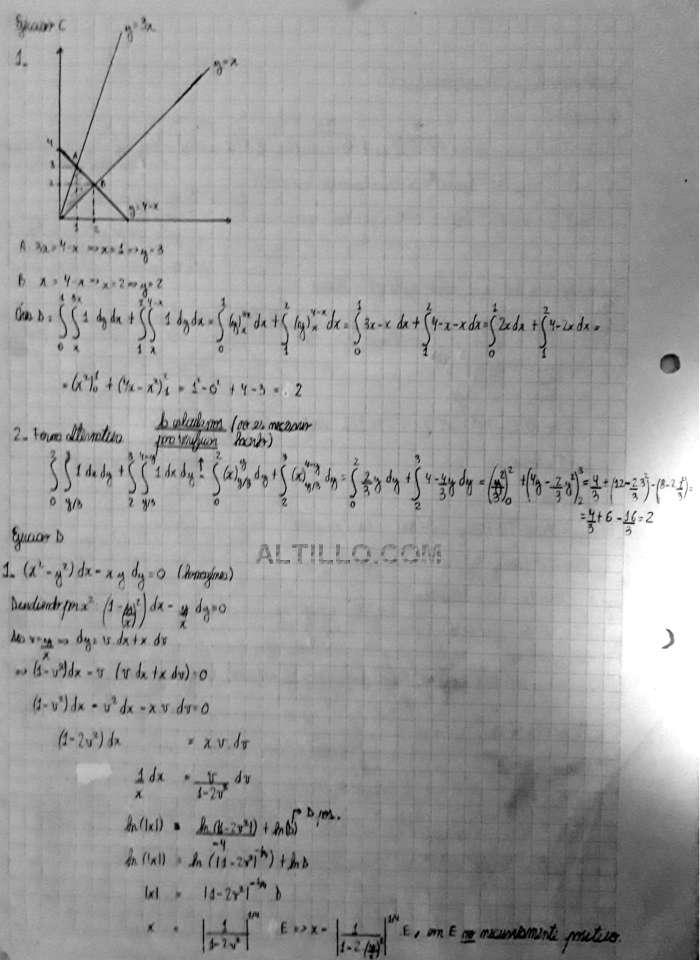 Ejercicio C
1.
y=3x
y=x
4
3
2
A
B
y=4-x
1 2
A: 3x=4-x ⇒ x=1 ⇒ y=3
B: x=4-x ⇒ x=2 ⇒ y=2
Área D = ∫₀¹∫ₓ³ˣ 1 dy dx + ∫₁²∫ₓ⁴⁻ˣ 1 dy dx = ∫₀¹ (y)ₓ³ˣ dx + ∫₁² (y)ₓ⁴⁻ˣ dx = ∫₀¹ 3x-x dx + ∫₁² 4-x-x dx = ∫₀¹ 2x dx + ∫₁² 4-2x dx =
= (x²)₀¹ + (4x-x²)₁² = 1²-0² + 4-3 = 2
2. Forma alternativa
lo calculamos (no es necesario
para verificar hacerlo)
∫₀²∫_{y/3}^{y} 1 dx dy + ∫₂³∫_{y/3}^{4-y} 1 dx dy = ∫₀² (x)_{y/3}^{y} dy + ∫₂³ (x)_{y/3}^{4-y} dy = ∫₀² 2/3 y dy + ∫₂³ 4-4/3 y dy = (y²/3)₀² + (4y-2/3 y²)₂³ = 4/3 + (12-2/3 3²) - (8-2/3 2²) =
= 4/3 + 6 - 16/3 = 2
Ejercicio D
ALTILLO.COM
1. (x²-y²) dx - x y dy = 0 (homogénea)
Dividiendo por x² (1-(y/x)²) dx - y/x dy = 0
v=y/x ⇒ dy = v dx + x dv
⇒ (1-v²) dx - v (v dx + x dv) = 0
(1-v²) dx - v² dx - x v dv = 0
(1-2v²) dx = x v dv
1/x dx = v/(1-2v²) dv
ln(|x|) = ln(|1-2v²|)/-4 + ln(D) → D pos.
ln(|x|) = ln(|1-2v²|^{-1/4}) + ln D
|x| = |1-2v²|^{-1/4} D
x = |1/(1-2v²)|^{1/4} E ⇒ x = |1/(1-2(y/x)²)|^{1/4} E, con E no necesariamente positivo.